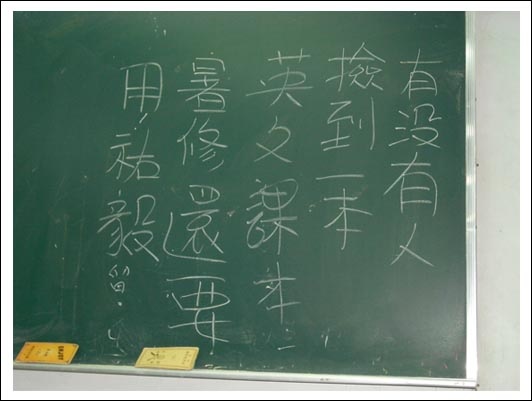 有没有人
撿到一本
英文課本
暑修還要
用!祐毅留